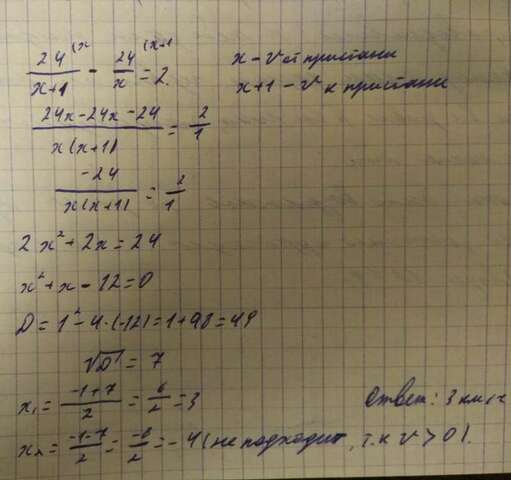 24(x / x+1 - 24(x+1 / x = 2    x - v от пристани
x+1 - v к пристани
24x-24x-24 / x(x+1) = 2/1
-24 / x(x+1) = 2/1
2x²+2x=24
x²+x-12=0
D=1²-4·(-12)=1+48=49
√D=7
x₁= -1+7 / 2 = 6/2 =3    Ответ: 3 км/ч
x₂= -1-7 / 2 = -8/2 = -4 (не подходит, т.к v>0).